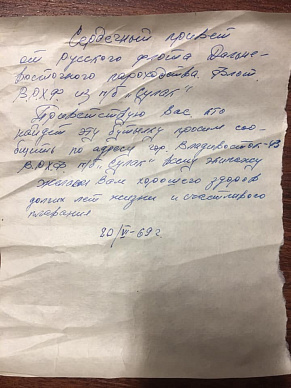 Сердечный привет
от русского флота Дальне-
восточного пароходства. Влад.
В.О.Х.Ф. из п/б „Сулак"
Приветствую Вас, кто
найдет эту бутылку просим соо-
бщить по адресу гор. Владивосток-43
В.О.Х.Ф. п/б „Сулак" всему экипажу
Желаем Вам хорошего здоров
долгих лет жизни и счастливого
плавания
20/VI-69 г.